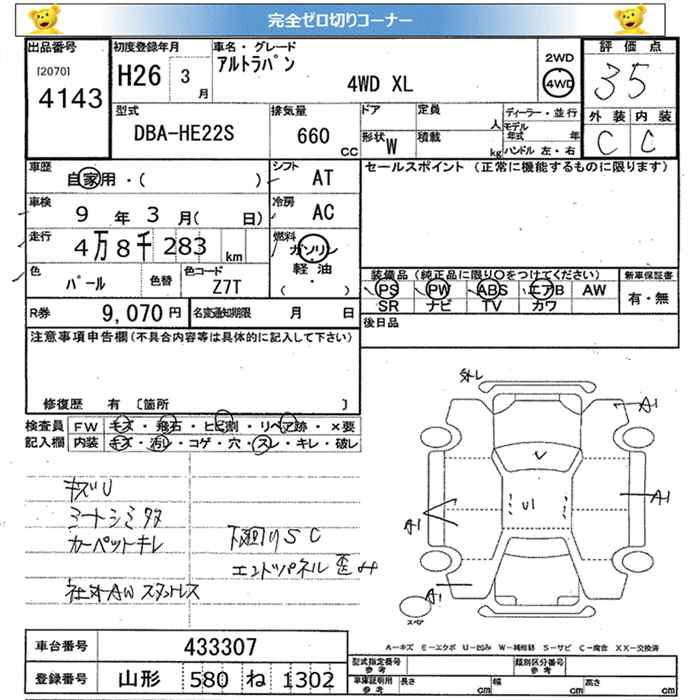 完全ゼロ切りコーナー
出品番号 初度登録年月 車名・グレード 評価点
[2070] 4143
H26 3月
アルトラパン
4WD XL
2WD
4WD
35
外装 内装
C C
型式 排気量 ドア 定員 人 ディーラー・並行
DBA-HE22S 660 CC
形状 W 積載 kg
モデル年式 年
ハンドル 左・右
車歴 自家用・( ) シフト AT
車検 9年3月( 日) 冷房 AC
走行 4万8千283km 燃料 ガソリン 軽油 ( ・ )
色 パール 色替 色コード Z7T
R券 9,070円 名変通知期限 月 日
セールスポイント(正常に機能するものに限ります)
装備品(純正品に限り〇をつけてください) 新車保証書
PS PW ABS エアB AW 有・無
SR ナビ TV カワ
後日品
注意事項申告欄(不具合内容等は具体的に記入して下さい)
修復歴 有 [箇所 ]
検査員 FW キズ・飛石・ヒビ割・リペア跡・×要
記入欄 内装 キズ・汚レ・コゲ・穴・スレ・キレ・破レ
キズU
シートシミタタ
カーペットキレ
下廻りSC
エンドパネル歪み
社外AW スタットレス
外レ
A1
U
U1
A1
A1
A1
スペア
A-キズ E-エクボ U-凹み W-補修跡 S-サビ C-腐食 XX-交換済
車台番号 433307
登録番号 山形 580 ね 1302
型式指定番号 参考 類別区分番号 参考
車庫証明用 参考 長さ cm 幅 cm 高さ cm